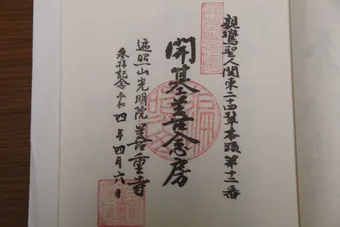 親鸞聖人関東二十四輩本頭第十二番
開基善念房
遍照山光明院善重寺
参拝記念 令和四年四月六日